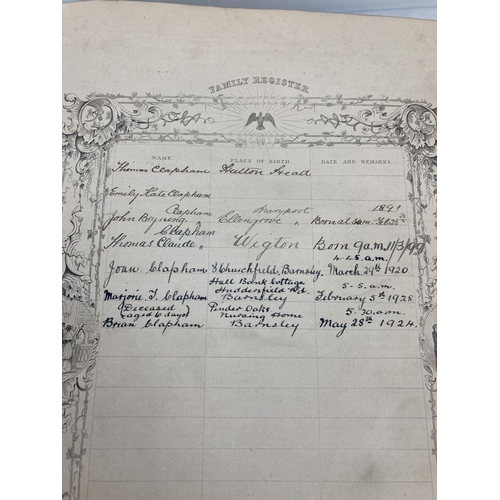 FAMILY REGISTER
NAME PLACE OF BIRTH DATE AND REMARKS
Thomas Clapham Hutton Head
Emily Kate Clapham
Clapham Maryport 1891
John Bryning Ellengrove " Born at 3 a.m. Feb 25th
Clapham
Thomas Claude " Wigton Born 9 a.m. 11/3/99
4.45. a.m.
Joan. Clapham 8 Churchfield, Barnsley. March 29th 1920
Hall Bank Cottage 5-5. a.m.
Huddersfield Rd.
Marjorie J. Clapham Barnsley February 5th 1928
(Deceased Pinder Oaks 5.30. a.m.
aged 6 days) Nursing Home
Brian Clapham Barnsley May 28th 1924.